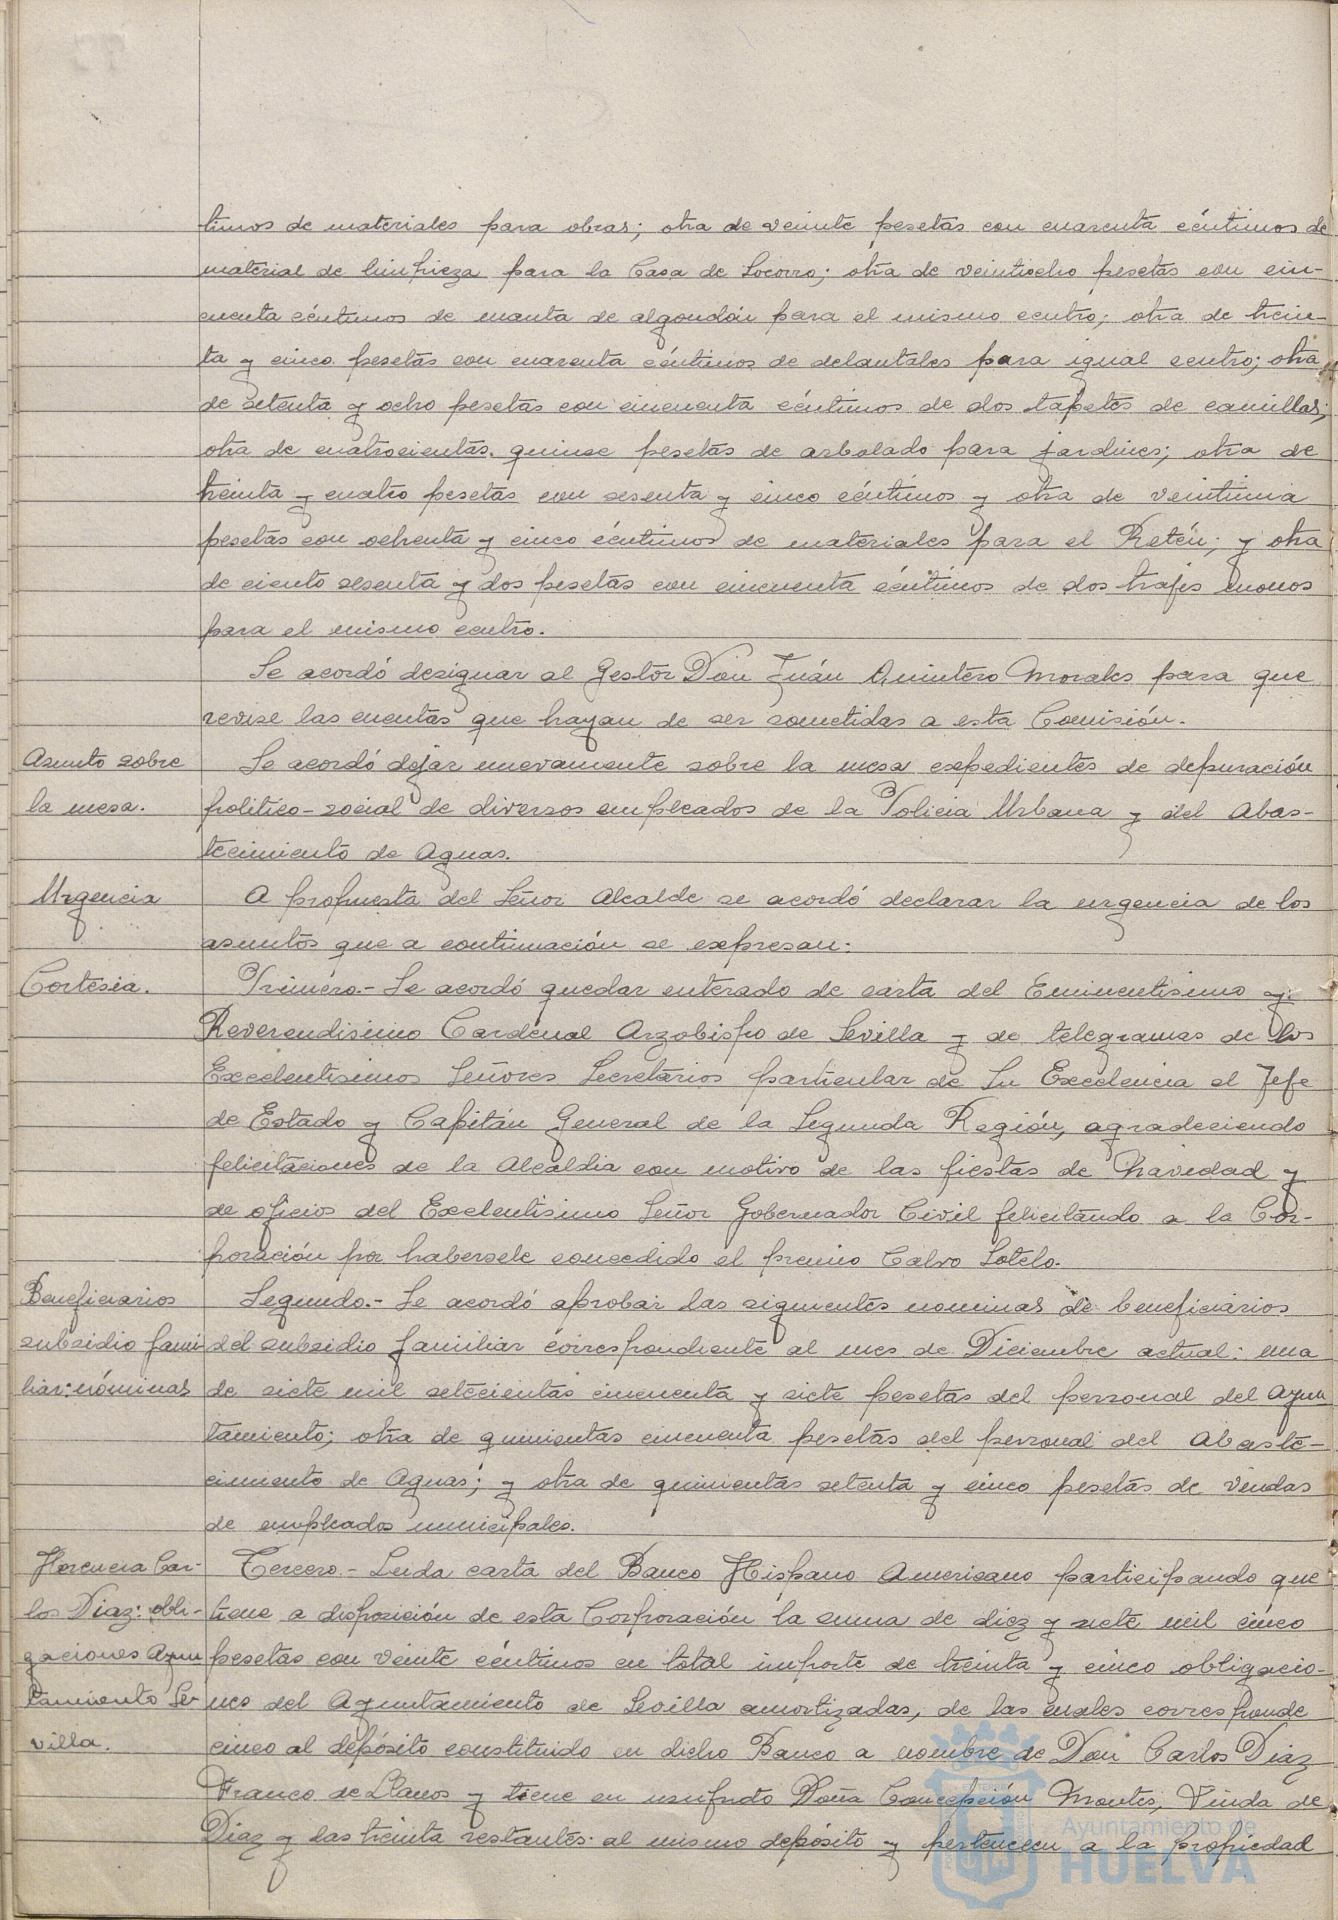 timos de materiales para obras; otra de veinte pesetas con cuarenta céntimos de
material de limpieza para la Casa de Socorro; otra de veintiocho pesetas con cin-
cuenta céntimos de manta de algondón para el mismo centro; otra de trein-
ta y cinco pesetas con cuarenta céntimos de delantales para igual centro; otra
de setenta y ocho pesetas con cincuenta céntimos de dos tapetes de camillas;
otra de cuatrocientas quinse pesetas de arbolado para jardines; otra de
treinta y cuatro pesetas con sesenta y cinco céntimos y otra de veintiuna
pesetas con ochenta y cinco céntimos de materiales para el Retén; y otra
de ciento sesenta y dos pesetas con cincuenta céntimos de dos trajes monos
para el mismo centro.
Se acordó designar al Gestor Don Juán Quintero Morales para que
revise las cuentas que hayan de ser sometidas a esta Comisión.
Asunto sobre
la mesa.
Se acordó dejar nuevamente sobre la mesa expedientes de depuración
politico-social de diversos empleados de la Policia Urbana y del Abas-
tecimiento de Aguas.
Urgencia
A propuesta del Señor Alcalde se acordó declarar la urgencia de los
asuntos que a continuación se expresan:
Cortesia.
Primero.- Se acordó quedar enterado de carta del Eminentisimo y
Reverendisimo Cardenal Arzobispo de Sevilla y de telegramas de los
Excelentisimos Señores Secretarios particular de Su Excelencia el Jefe
de Estado y Capitán General de la Segunda Región, agradeciendo
felicitaciones de la Alcaldia con motivo de las fiestas de Navidad y
de oficios del Excelentisimo Señor Gobernador Civil felicitando a la Cor-
poración por habersele concedido el premio Calvo Sotelo.
Beneficiarios
subsidio fami
liar: nóminas
Segundo.- Se acordó aprobar las siguientes nominas de beneficiarios
del subsidio familiar correspondiente al mes de Diciembre actual: una
de siete mil setecientas cincuenta y siete pesetas del personal del Ayun
tamiento; otra de quinientas cincuenta pesetas del personal del Abaste-
cimiento de Aguas; y otra de quinientas setenta y cinco pesetas de viudas
de empleados municipales.
Herencia Car-
los Diaz: obli-
gaciones Ayun
tamiento Se-
villa.
Tercero.- Leida carta del Banco Hispano Americano participando que
tiene a disposición de esta Corporación la suma de diez y siete mil cinco
pesetas con veinte céntimos en total importe de treinta y cinco obligacio-
nes del Ayuntamiento de Sevilla amortizadas, de las cuales corresponde
cinco al depósito constituido en dicho Banco a nombre de Don Carlos Diaz
Franco de Llanos y tiene en usufruto Doña Concepción Montes, Viuda de
Diaz y las treinta restantes al mismo depósito y pertenecen a la propiedad
Ayuntamiento de
HUELVA